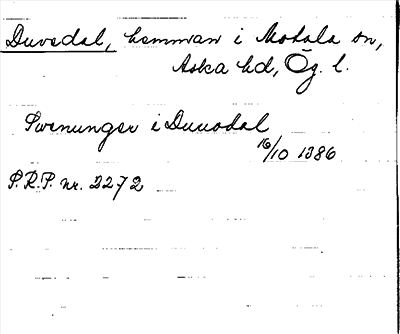 Duvedal, hemman i Motala sn,
Aska hd, Ög. l.
Swenunger i Duuodal
16/10 1386
P.R.P. nr. 2272